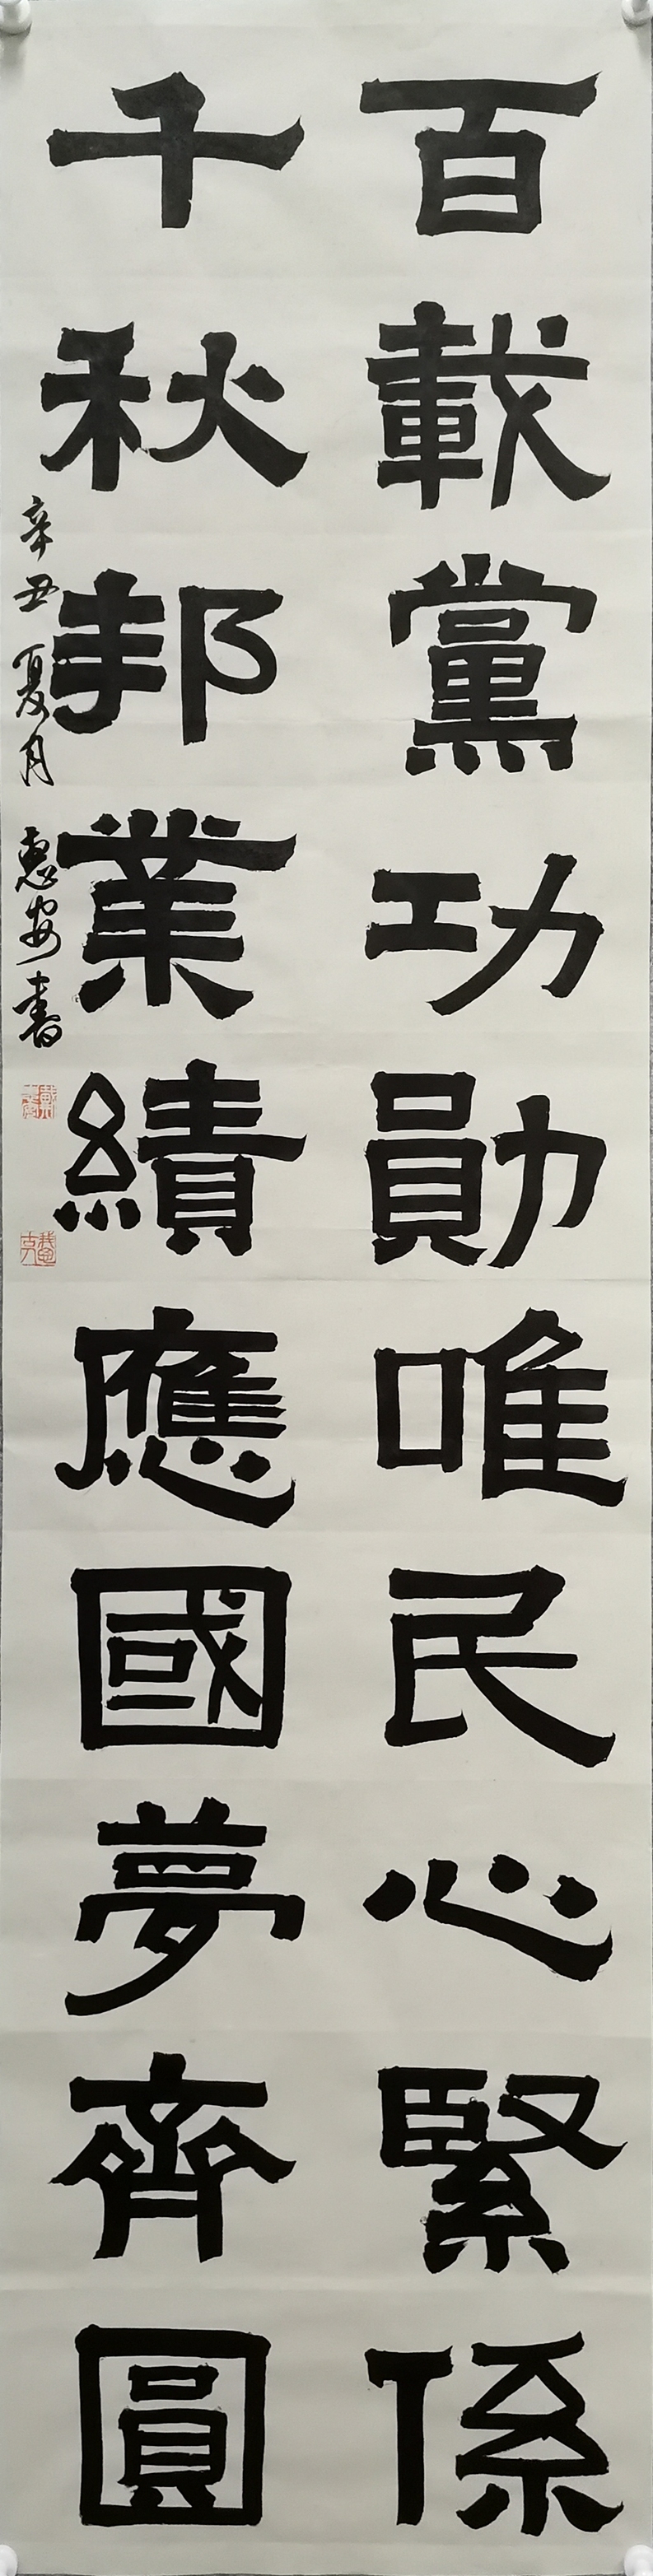 百載黨功勛唯民心緊係
千秋邦業績應國夢齊圓
辛丑夏月 惠安書